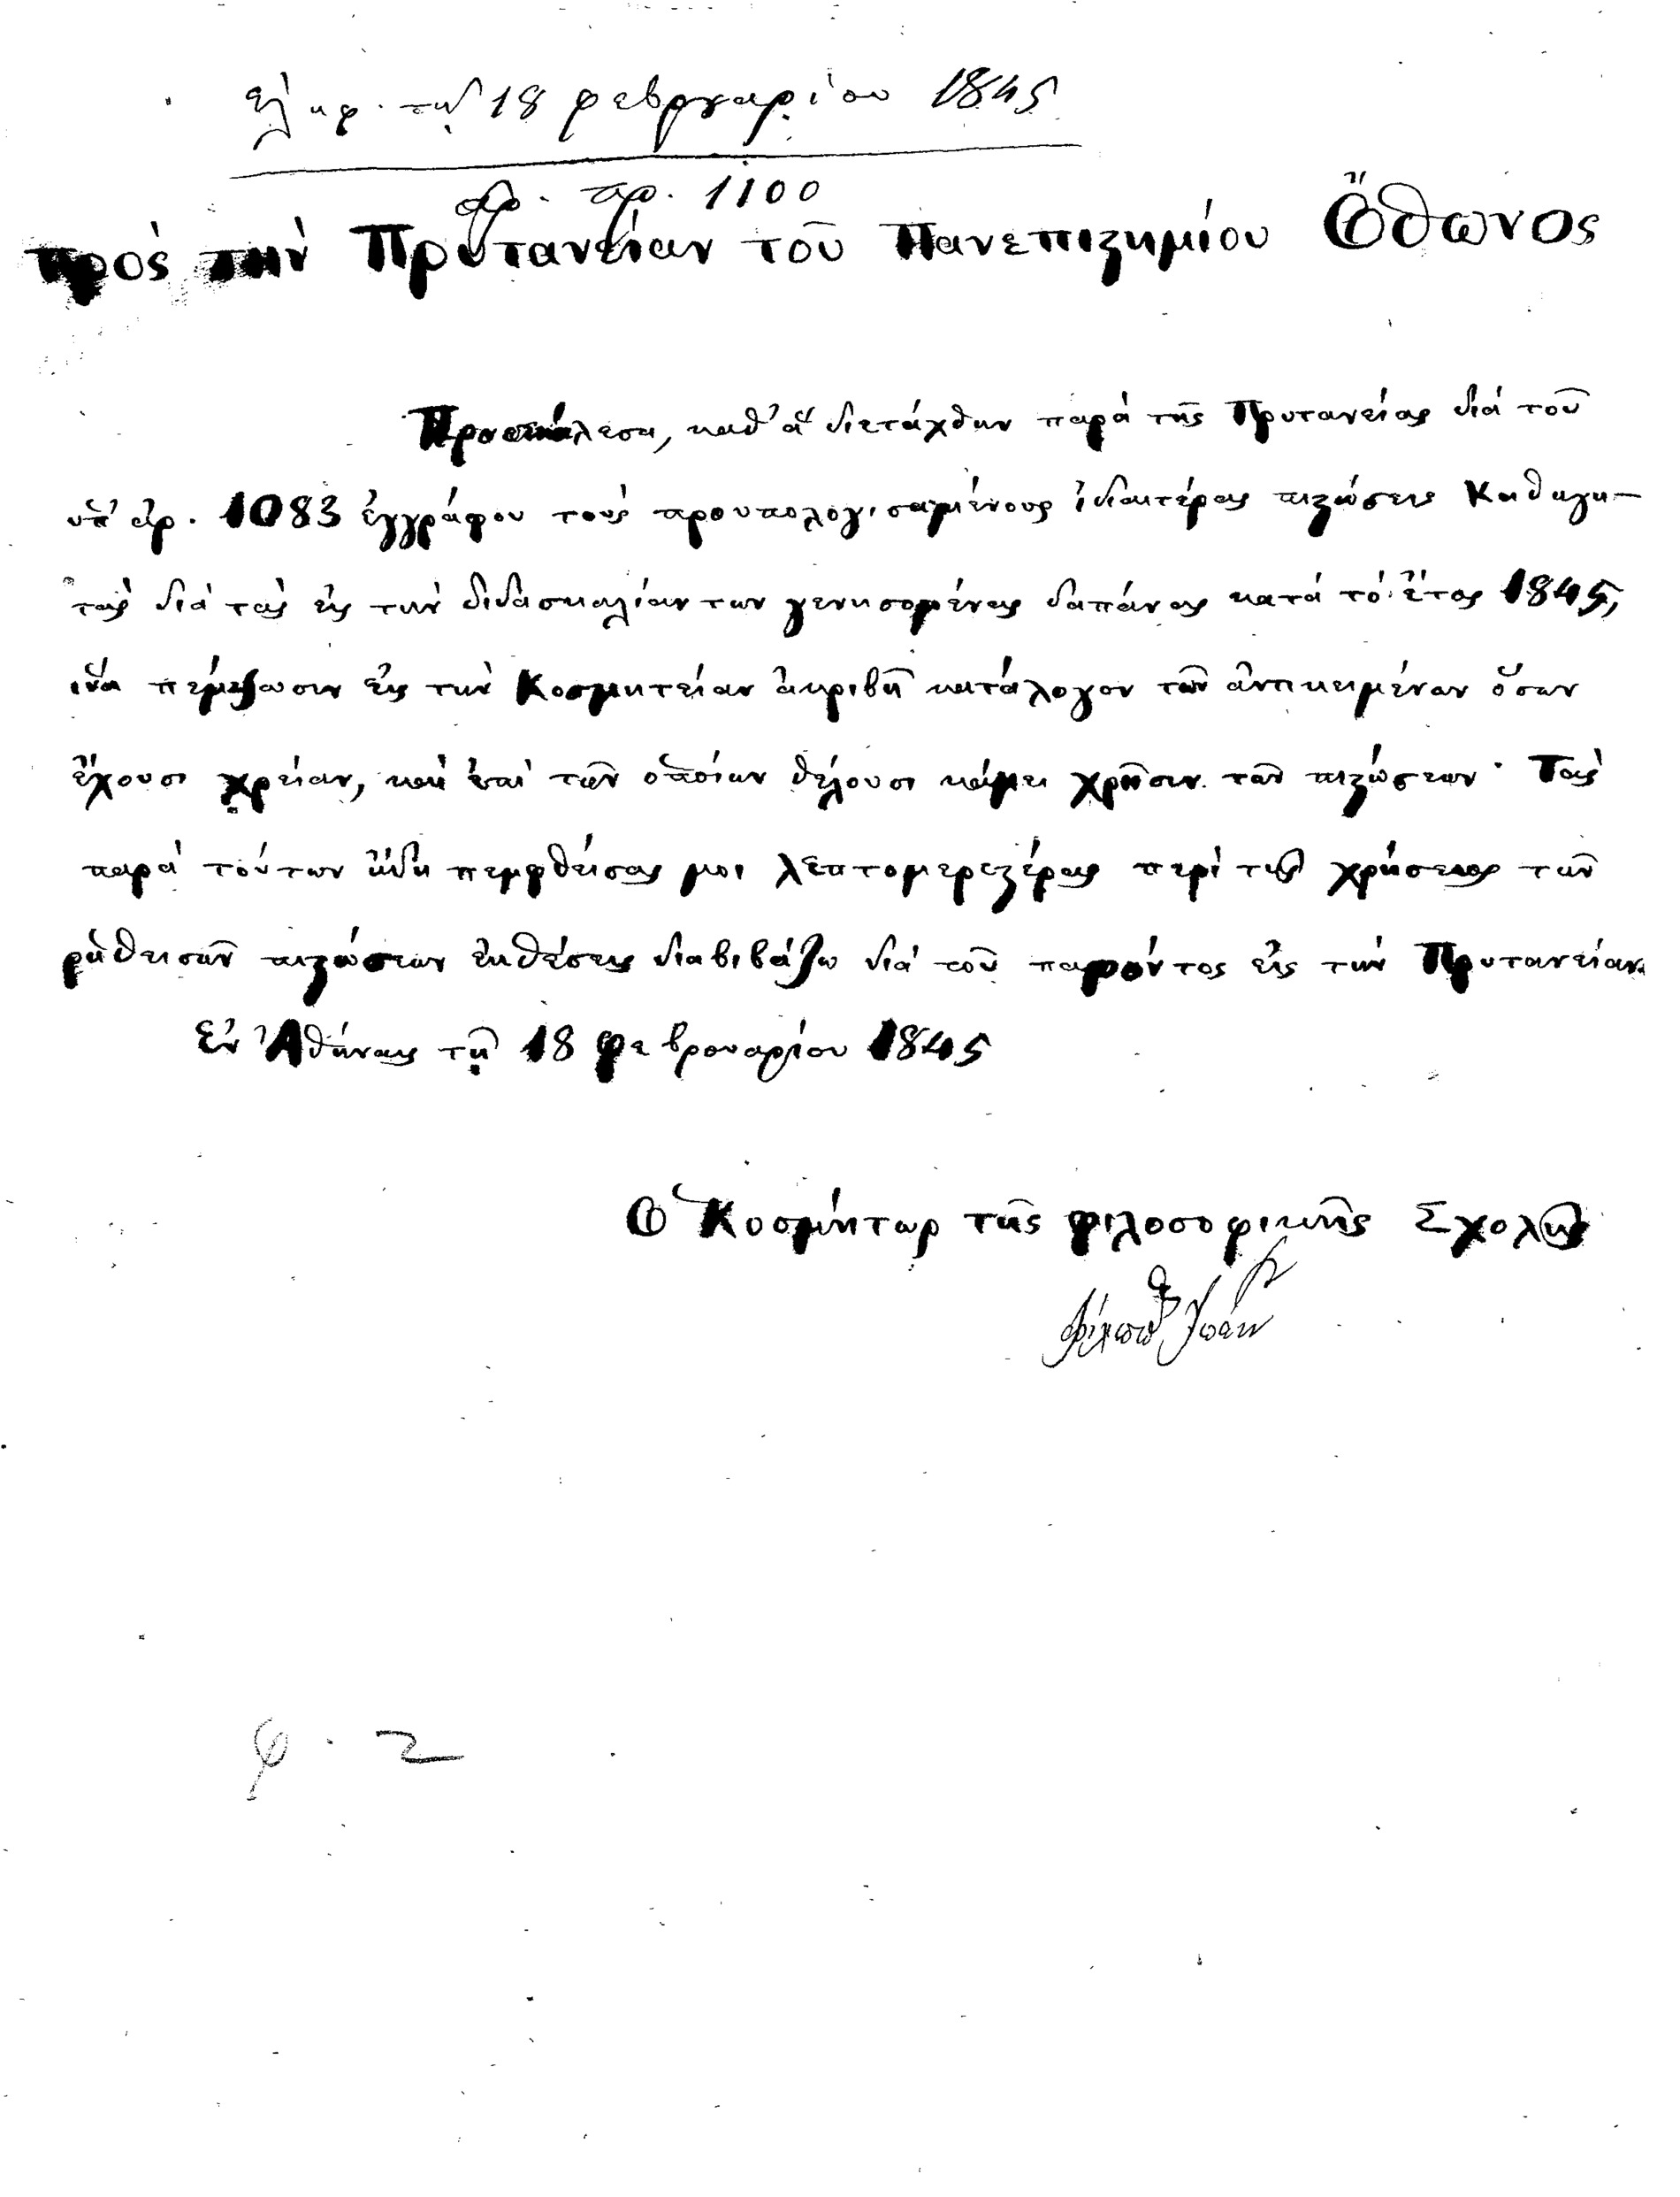 Ἐλήφ. τῇ 18 φεβρουαρίου 1845
ἀρ. πρ. 1100
Πρὸς τὴν Πρυτανείαν τοῦ Πανεπιστημίου Ὄθωνος
Προσεκάλεσα, καθ' ἃ διετάχθην παρὰ τῆς Πρυτανείας διὰ τοῦ
ὑπ' ἀρ. 1083 ἐγγράφου τοὺς προϋπολογισαμένους ἰδιαιτέρας πιστώσεις Καθηγη-
τὰς διὰ τὰς εἰς τὴν διδασκαλίαν των γενησομένας δαπάνας κατὰ τὸ ἔτος 1845,
ἵνα πέμψωσιν εἰς τὴν Κοσμητείαν ἀκριβῆ κατάλογον τῶν ἀντικειμένων ὅσων
ἔχουσι χρείαν, καὶ ἐπὶ τῶν ὁποίων θέλουσι κάμει χρῆσιν τῶν πιστώσεων· Τὰς
παρὰ τούτων ἤδη πεμφθείσας μοι λεπτομερεστέρας περὶ τῆς χρήσεως τῶν
ῥηθεισῶν πιστώσεων ἐκθέσεις διαβιβάζω διὰ τοῦ παρόντος εἰς τὴν Πρυτανείαν.
Ἐν Ἀθήναις τῇ 18 φεβρουαρίου 1845
Ὁ Κοσμήτωρ τῆς φιλοσοφικῆς Σχολῆς
Φίλιππος Ἰωάν
φ. 2